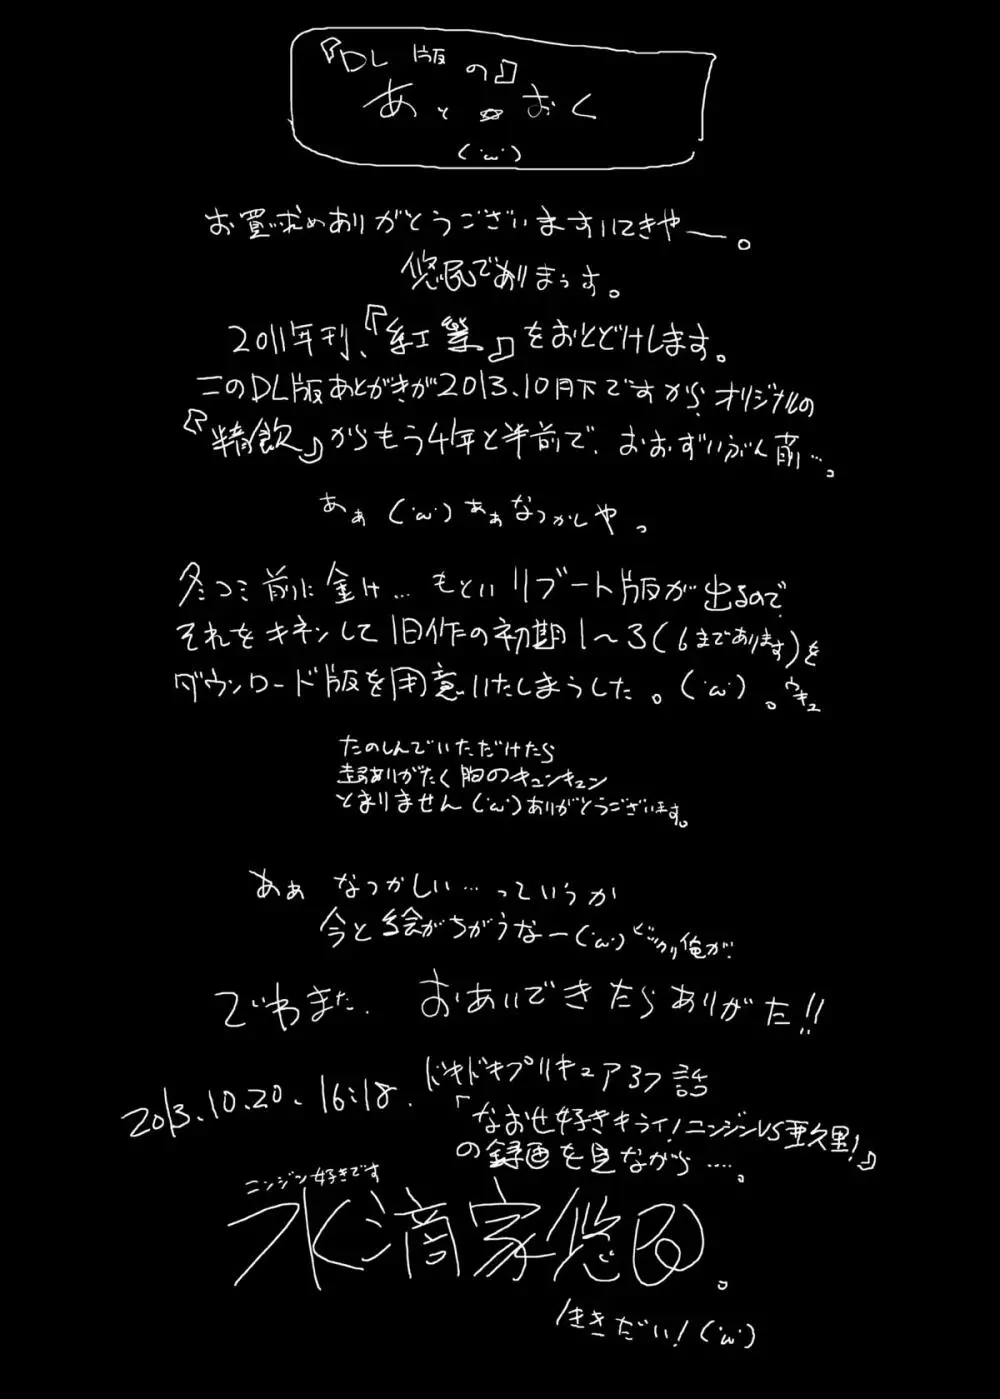 『DL版の』
あと☆おく
(･ω･)
お買求めありがとうございますいてきやー。
悠民でありまっす。
2011年刊、『紅業』をおとどけします。
このDL版あとがきが2013.10月下ですから、オリジナルの
『精飲』からもう4年と半前で、おおずいぶん前…。
あぁ(･ω･)あぁなつかしや。
冬コミ前に金け…もといリブート版が出るので
それをキネンして旧作の初期1～3(6まであります)を
ダウンロード版を用意いたしまうした。(･ω･)。ウキュ
たのしんでいただけたら
ありがたく胸のキュンキュン
とまりません(･ω･)ありがとうございます。
あぁ なつかしい…っていうか
今と絵がちがうなー(･ω･)ビックリ俺が!
でわまた、おあいできたらありがた!!
2013.10.20、16:18、ドキドキプリキュア37話
「なおせ好きキライ!ニンジンVS亜久里!」
の録画を見ながら…。
ニンジン好きです
水滴家悠民。
生きだい!(･ω･)